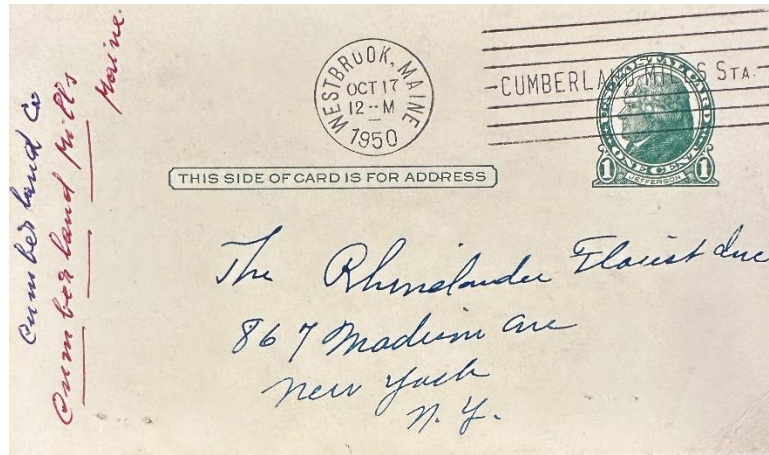 Cumberland Co
Cumberland Mills
Maine.
WESTBROOK, MAINE
OCT 17
12-M
1950
CUMBERLAND MILLS STA.
U.S. POSTAL CARD
ONE CENT
1 JEFFERSON 1
THIS SIDE OF CARD IS FOR ADDRESS
The Rhinelander Florist Inc
867 Madison Ave
New York
N.Y.